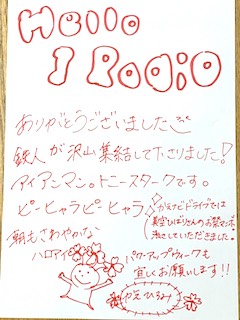 Hello
I Radio
ありがとうございました
鉄人が沢山集結して下さりました!
アイアンマン。トニースタークです。
ピーヒャラピーヒャラ
ガオナビドライブでは
美空ひばりさんのお祭マンボ
流させていただきました。
朝もさわやかな
ハロアイ
パワーアップウィークも
宜しくお願いします!!
かえひろみ